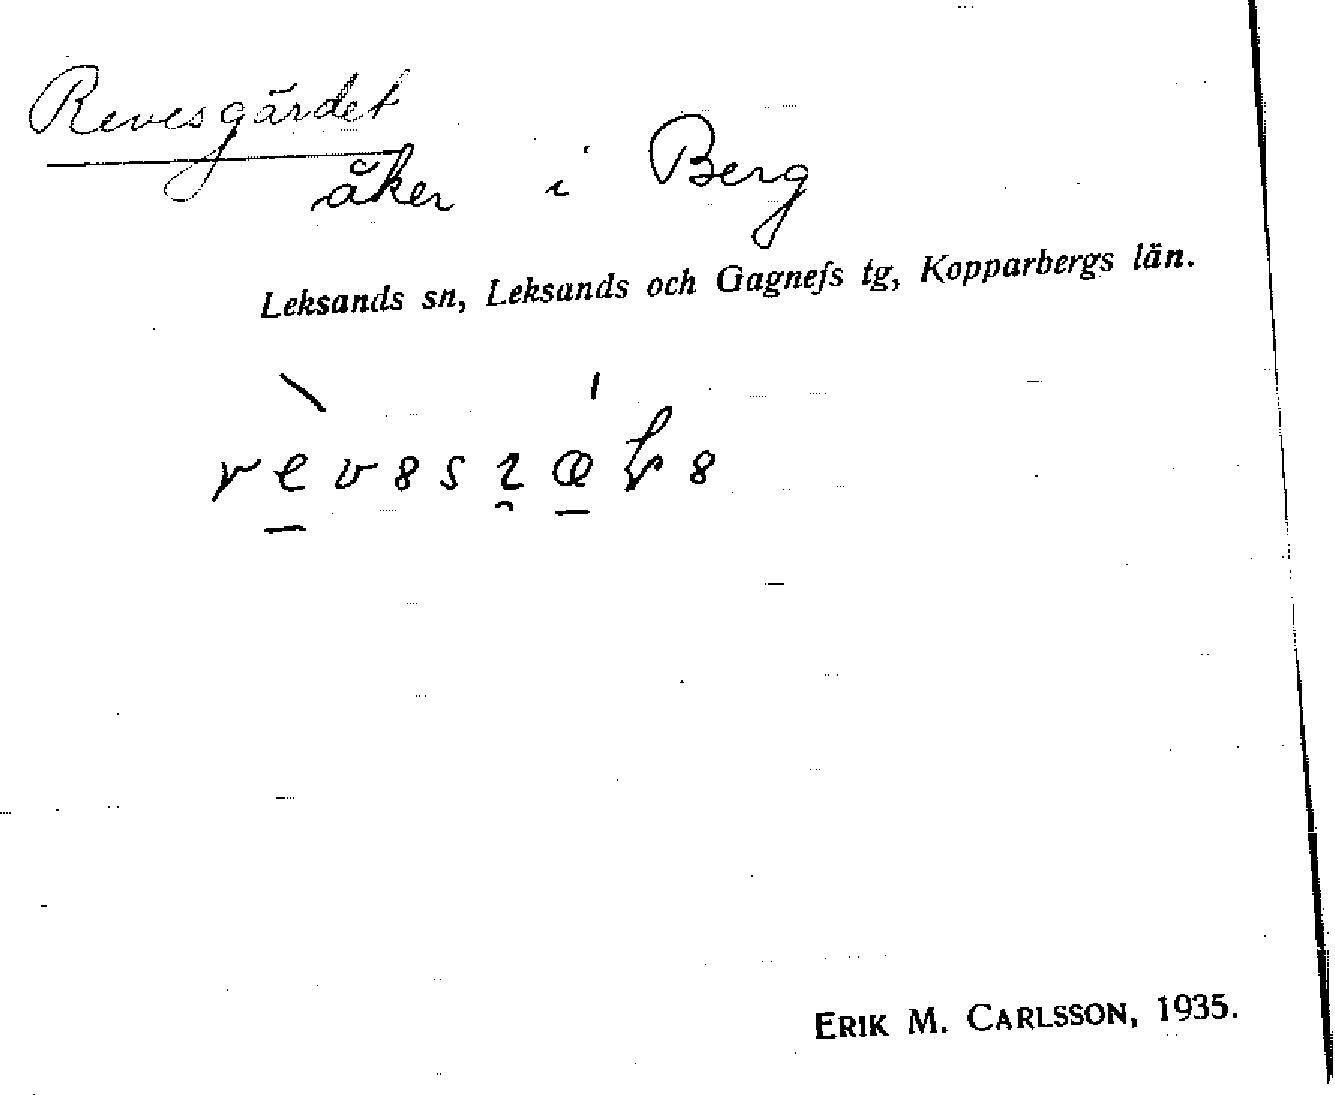 Revesgärdet
åker i Berg
Leksands sn, Leksands och Gagnefs tg, Kopparbergs län.
ERIK M. CARLSSON, 1935.